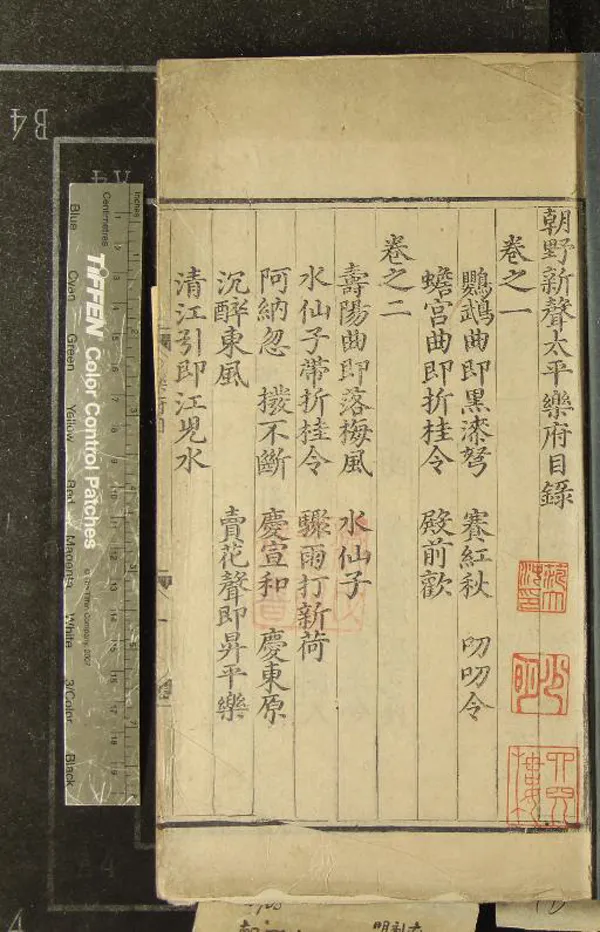 朝野新聲太平樂府目錄
卷之一
鸚鵡曲即黑漆弩 賽紅秋 叨叨令
蟾宮曲即折桂令 殿前歡
卷之二
壽陽曲即落梅風 水仙子
水仙子帶折桂令 驟雨打新荷
阿納忽 撥不斷 慶宣和 慶東原
沉醉東風 賣花聲即昇平樂
清江引即江兒水
B4
A4
Inches
Centimetres
TIFFEN Color Control Patches
© The Tiffen Company, 2007
Blue
Cyan
Green
Yellow
Red
Magenta
White
3/Color
Black